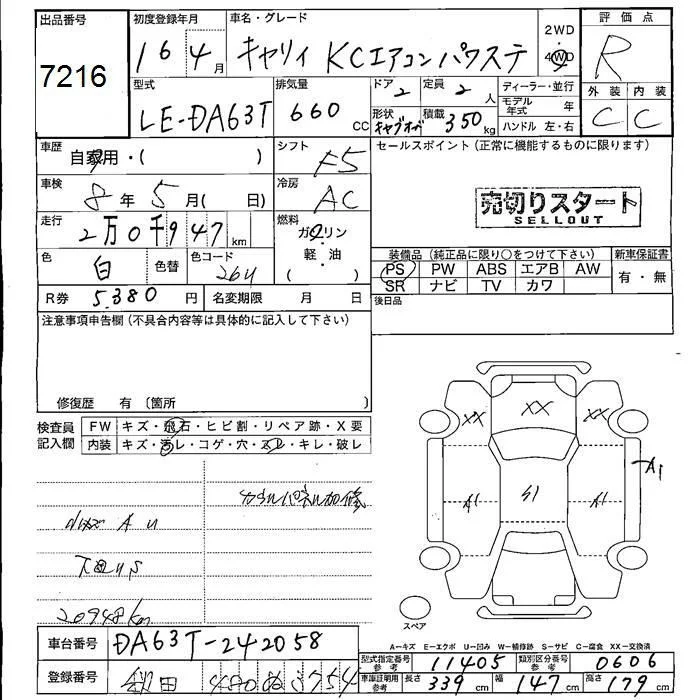 出品番号
7216
初度登録年月
16 4月
車名・グレード
キャリイ KCエアコン パワステ
2WD
4WD
評価点
R
型式
LE-DA63T
排気量
660 CC
ドア
2
定員
2 人
ディーラー・並行
モデル年式 年
形状
キャブオーバ
積載
350 kg
ハンドル 左・右
外装 内装
C C
車歴
自家用・( )
シフト
F5
セールスポイント(正常に機能するものに限ります)
車検
8年 5月( 日)
冷房
AC
売切りスタート
SELLOUT
走行
2万0千947 km
燃料
ガソリン
軽油
( )
色
白
色替
色コード
26U
装備品(純正品に限り○をつけて下さい)
新車保証書
PS PW ABS エアB AW
SR ナビ TV カワ
有・無
R券 5,380 円
名変期限 月 日
後日品
注意事項申告欄(不具合内容等は具体的に記入して下さい)
修復歴 有〔箇所 〕
検査員記入欄
FW キズ・飛石・ヒビ割・リペア跡・X要
内装 キズ・汚レ・コゲ・穴・スレ・キレ・破レ
カウルパネル加修
小キズ A U
下回りS
20948km
XX XX XX
A1 S1 A1
A1
スペア
A-キズ E-エクボ U-凹み W-補修跡 S-サビ C-腐食 XX-交換済
車台番号
DA63T-242058
登録番号
秋田 480 ぬ 3754
型式指定番号 参考
11405
類別区分番号 参考
0606
車庫証明用 参考
長さ 339 cm
幅 147 cm
高さ 179 cm